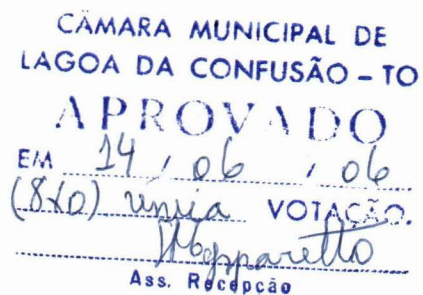 CÂMARA MUNICIPAL DE
LAGOA DA CONFUSÃO - TO
APROVADO
EM 14 / 06 / 06
(8x0) única VOTAÇÃO.
Ass. Recepção